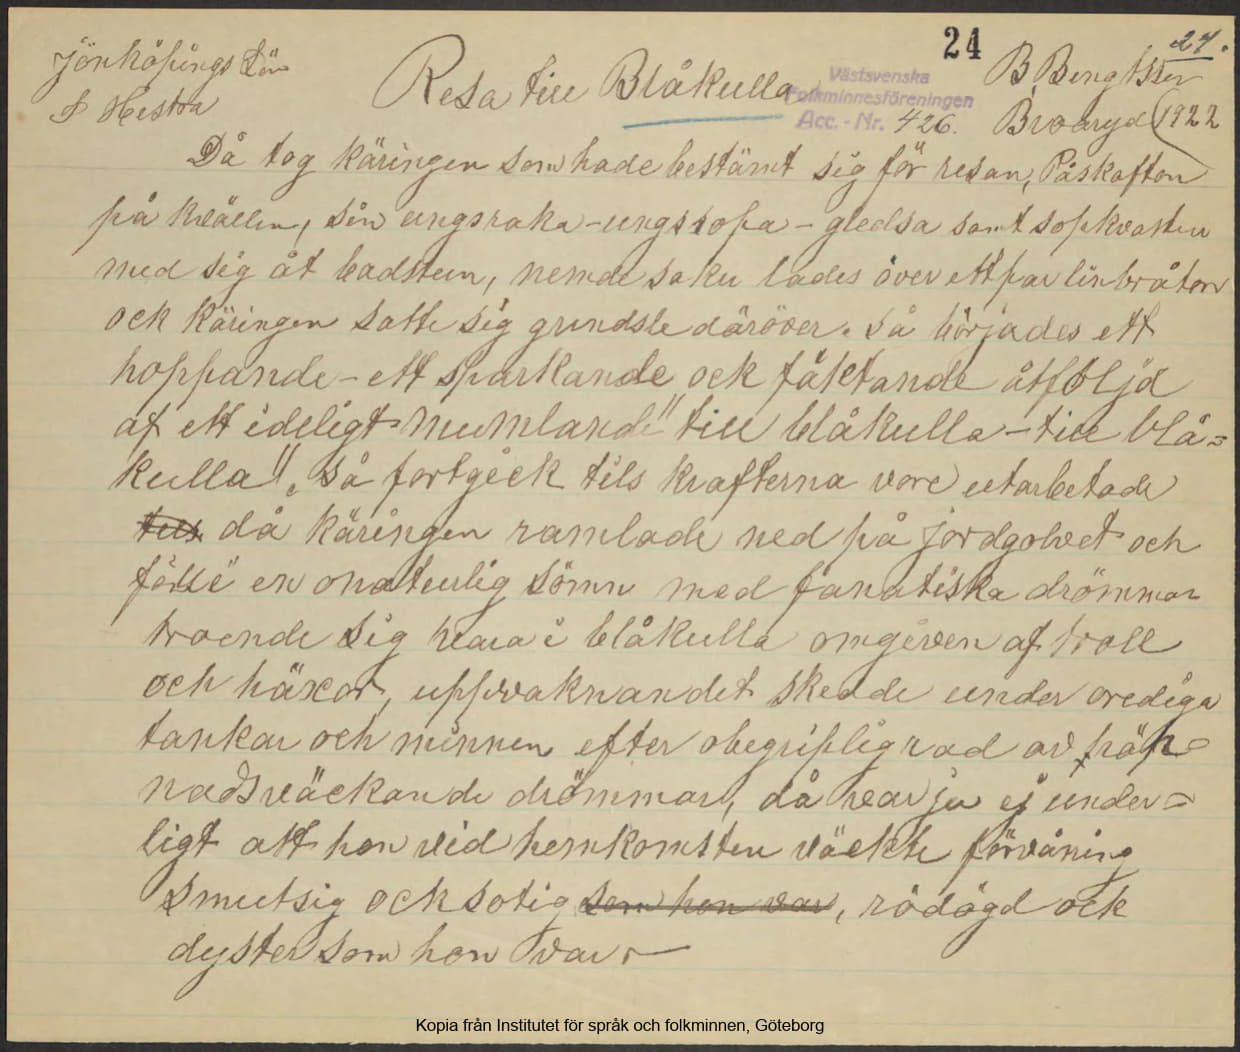 24
24.
Jönköpings Län
S Hestra
Resa till Blåkulla
Västsvenska
Folkminnesföreningen
Acc. - Nr. 426.
B. Bengtsson
Broaryd 1922
Då tog käringen som hade bestämt sig för resan, Påskafton
på kvällen, sin ungsraka - ungssopa - gledsa samt sopkvasten
med sig åt badstun, nemde saker lades över ett par linbråtor
ock käringen satte sig grindsle däröver. Så börjades ett
hoppande - ett sparkande ock fäktande åtföljd
af ett ideligt mumlande "till blåkulla - till blå=
kulla". Så fortgick tils krafterna vore utarbetade
tills då käringen ramlade ned på jordgolvet och
föll i en onaturlig sömn med fanatiska drömmar
troende sig vara i blåkulla omgiven af troll
och häxor, uppvaknandet skedde under orediga
tankar och minnen efter obegriplig rad av häp=
nadsväckande drömmar, då var ju ej under=
ligt att hon vid hemkomsten väckte förvåning
smutsig ock sotig som hon var, rödögd ock
dyster som hon var.
Kopia från Institutet för språk och folkminnen, Göteborg